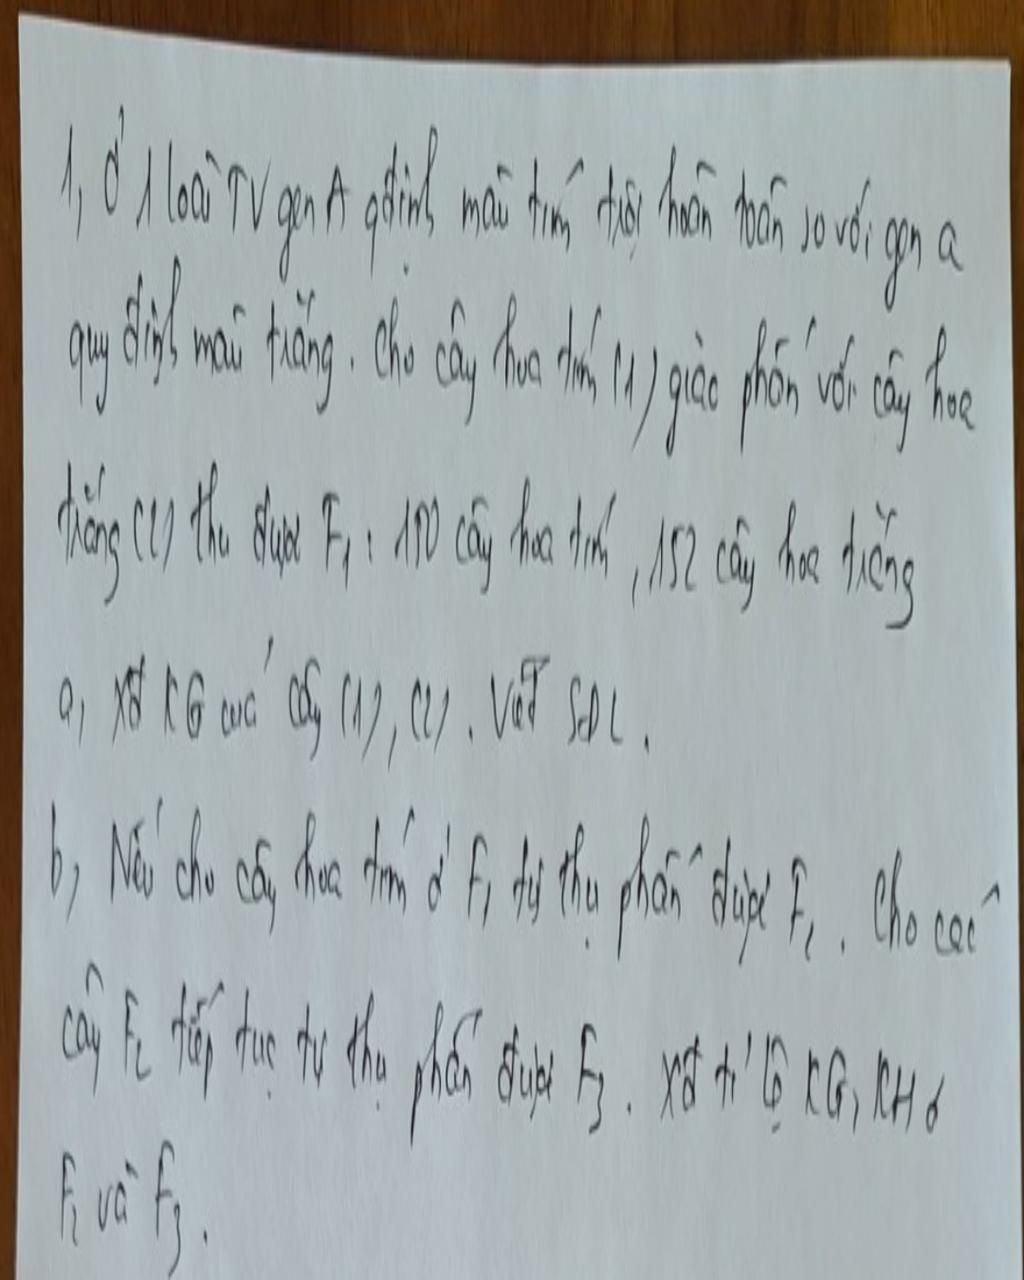 1, Ở 1 loài TV gen A qđịnh màu tím trội hoàn toàn so với gen a
quy định màu trắng. Cho cây hoa tím (1) giao phấn với cây hoa
trắng (2) thu được F1: 150 cây hoa tím, 152 cây hoa trắng
a, Xđ KG của cây (1), (2). Viết SĐL.
b, Nếu cho cây hoa tím ở F1 tự thụ phấn được F2. Cho các
cây F2 tiếp tục tự thụ phấn được F3. Xđ tỉ lệ KG, KH ở
F2 và F3.